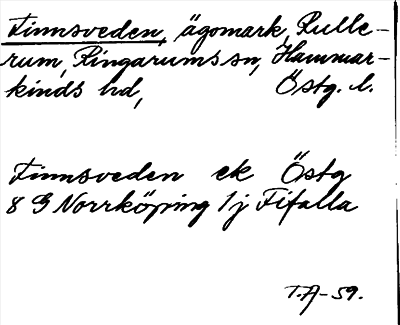 Finnsveden, ägomark, Rulle-
rum, Ringarums sn, Hammar-
kinds hd, Östg. l.
Finnsveden ek Östg
8 G Norrköping 1j Fifalla
T.A-59.